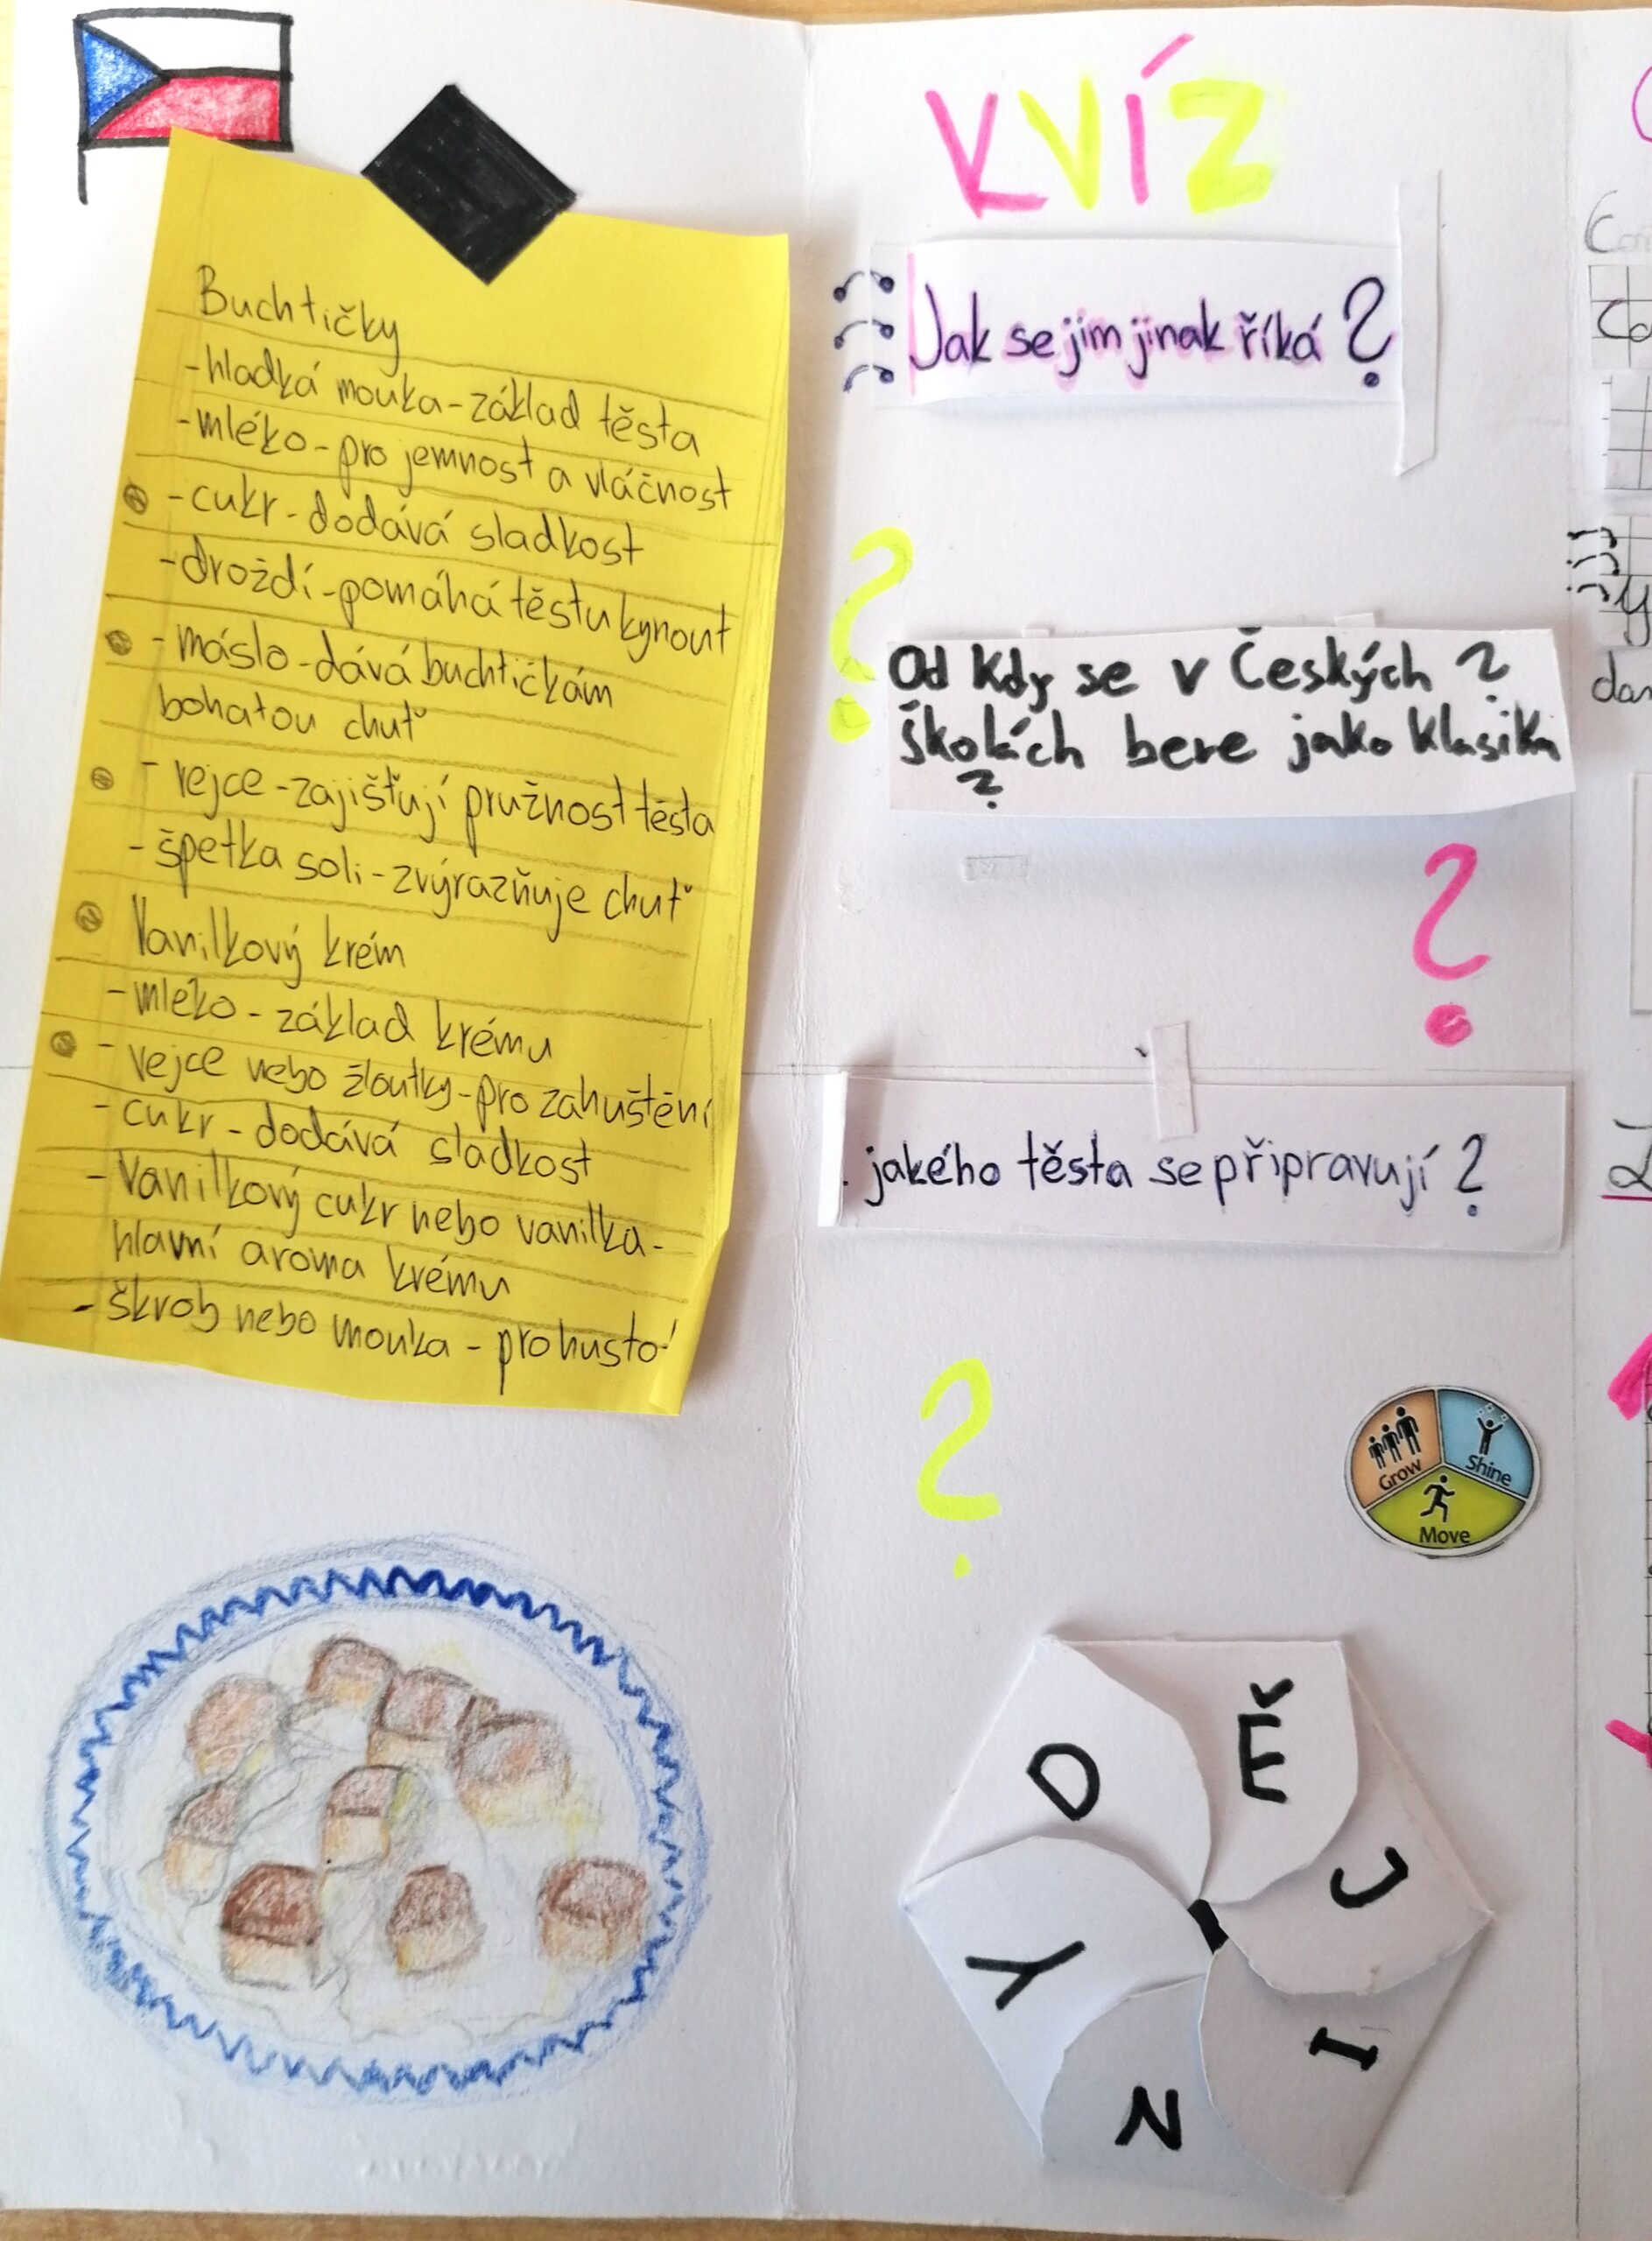 Buchtičky
-hladká mouka-základ těsta
-mléko-pro jemnost a vláčnost
-cukr-dodává sladkost
-droždí-pomáhá těstu kynout
-máslo-dává buchtičkám
bohatou chuť
-vejce-zajišťují pružnost těsta
-špetka soli-zvýrazňuje chuť
Vanilkový krém
-mléko-základ krému
-vejce nebo žloutky-pro zahuštění
-cukr-dodává sladkost
-Vanilkový cukr nebo vanilka-
hlavní aroma krému
-škrob nebo mouka-pro husto
KVÍZ
Jak se jim jinak říká?
Od Kdy se v Českých ?
školách bere jako klasika
?
?
?
jakého těsta se připravují?
?
Grow
Shine
Move
D
Ě
J
I
N
Y